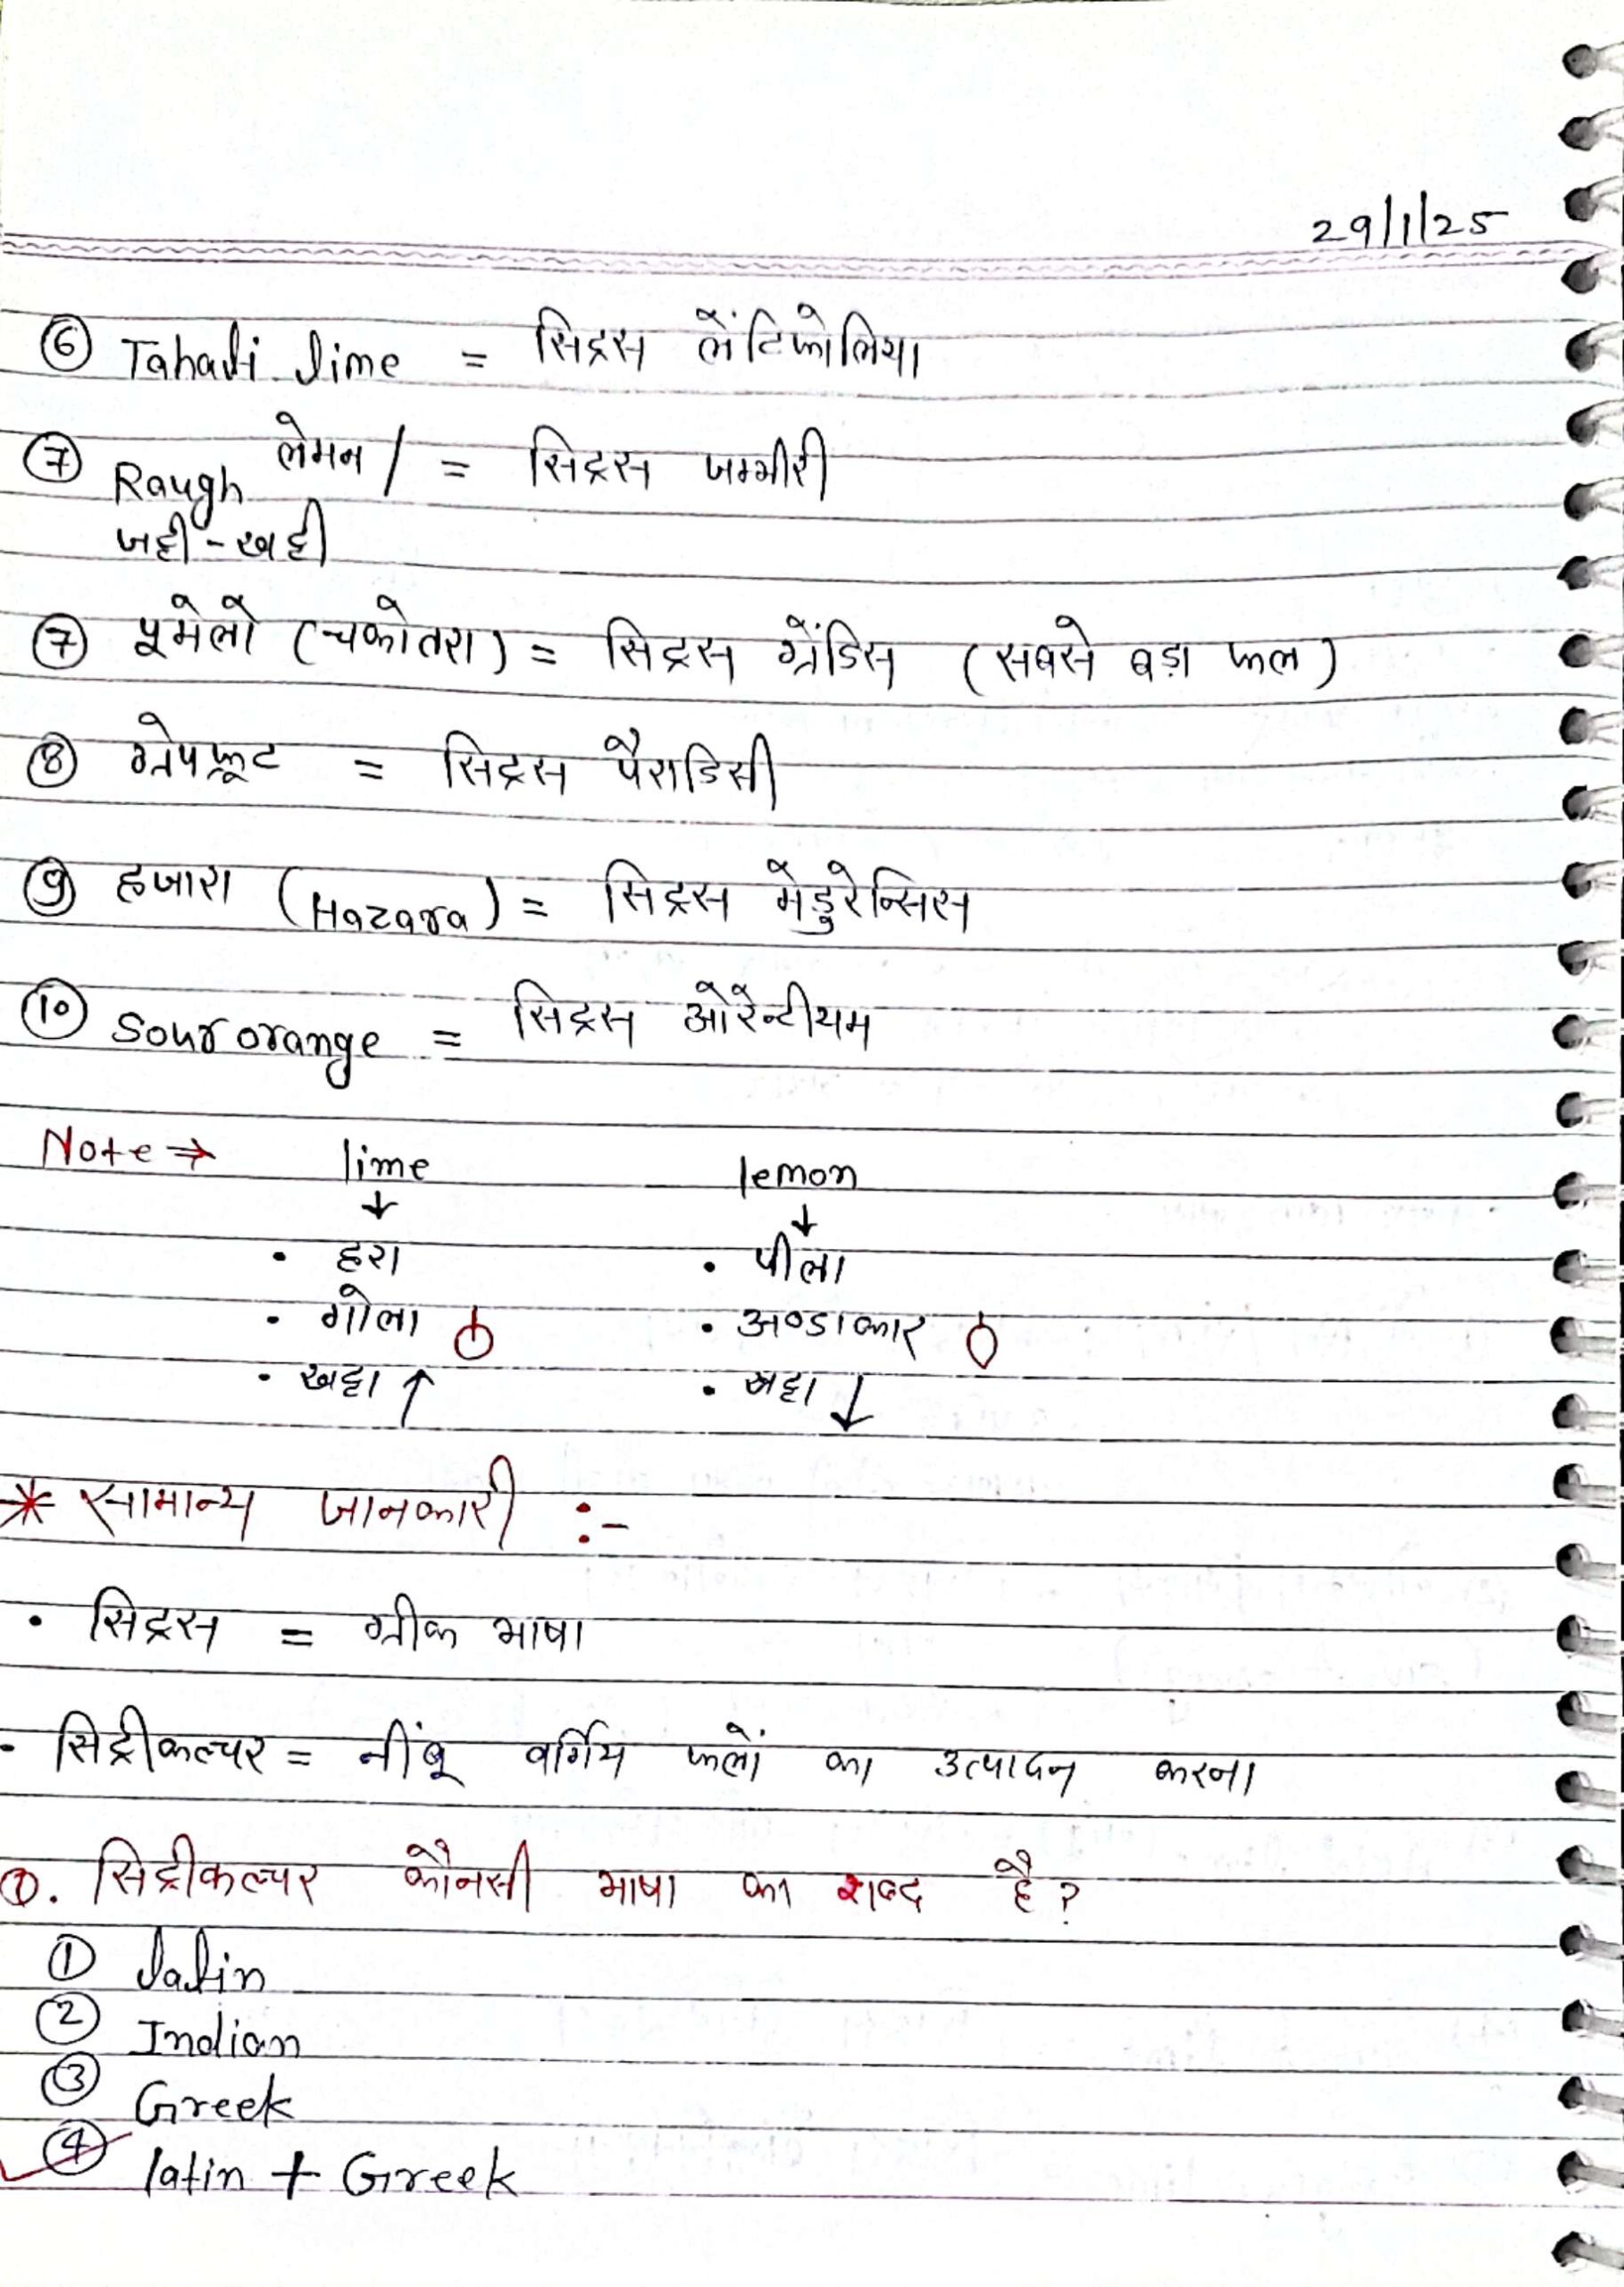 29/1/25
⑥ Tahadi lime = सिट्रस लेंटिफोलिया
⑦ Raugh लेमन / = सिट्रस जम्भीरी
जट्टी-खट्टी
⑦ पूमेलो (चकोतरा) = सिट्रस ग्रेंडिस (सबसे बड़ा फल)
⑧ ग्रेपफ्रूट = सिट्रस पैराडिसी
⑨ हजारा (Hazara) = सिट्रस मेडुरेन्सिस
⑩ Sour orange = सिट्रस ओरेन्टीयम
Note → lime lemon
↓ ↓
• हरा • पीला
• गोला • अण्डाकार
• खट्टा ↑ • खट्टा ↓
* सामान्य जानकारी :-
• सिट्रस = ग्रीक भाषा
- सिट्रीकल्चर = नींबू वर्गिय फलों का उत्पादन करना
Q. सिट्रीकल्चर कौनसी भाषा का शब्द है?
① Latin
② Indian
③ Greek
④ latin + Greek